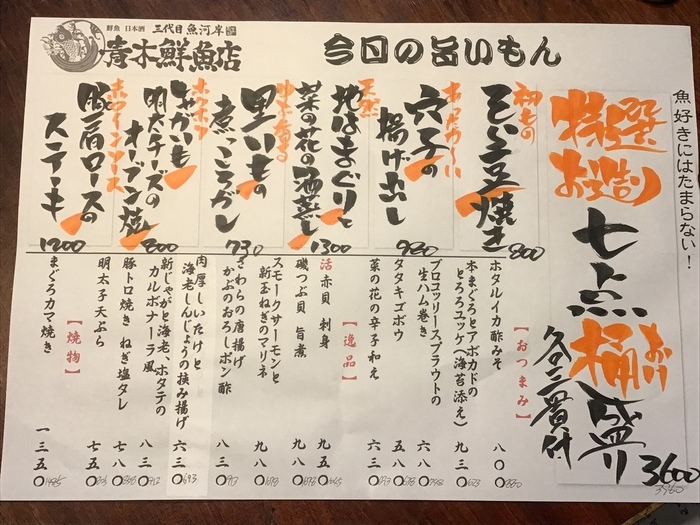 鮮魚 日本酒 三代目 魚河岸
青木鮮魚店
今日の旨いもん
魚好きにはたまらない！
特選
お造り
七点桶盛り
おけ
各三貫付
3600
3960
初もの
そら豆焼き
800
あったか〜い
穴子の
揚げ出し
980
天然
地はまぐりと
菜の花の酒蒸し
1300
ゆず香る
里いもの
煮っころがし
730
ホクホク
じゃがいも
明太チーズの
オーブン焼
800
赤ワインソース
豚肩ロースの
ステーキ
1200
【おつまみ】
ホタルイカ酢みそ 八〇〇 880
本まぐろとアボカドの
とろろユッケ（海苔添え） 九三〇 1023
ブロコッリースプラウトの
生ハム巻き 六八〇 748
タタキゴボウ 五八〇 638
菜の花の辛子和え 六三〇 693
【逸品】
活 赤貝 刺身 九五〇 1045
磯つぶ貝 旨煮 九八〇 1078
スモークサーモンと
新玉ねぎのマリネ 九八〇 1078
ざわらの唐揚げ
かぶのおろしポン酢 八三〇 913
肉厚しいたけと
海老しんじょうの挟み揚げ 六三〇 693
新じゃがと海老、ホタテの
カルボナーラ風 八三〇 913
豚トロ焼き ねぎ塩タレ 七八〇 858
明太子天ぷら 七五〇 825
【焼物】
まぐろカマ焼き 一三五〇 1485